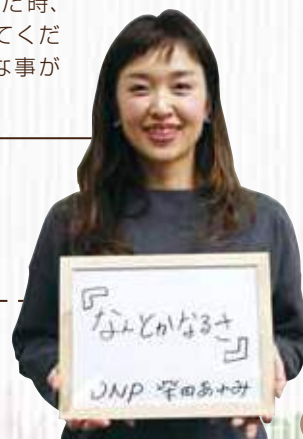 た時、
てくだ
な事が
『なんとかなるさ』
JNP 柴田あゆみ